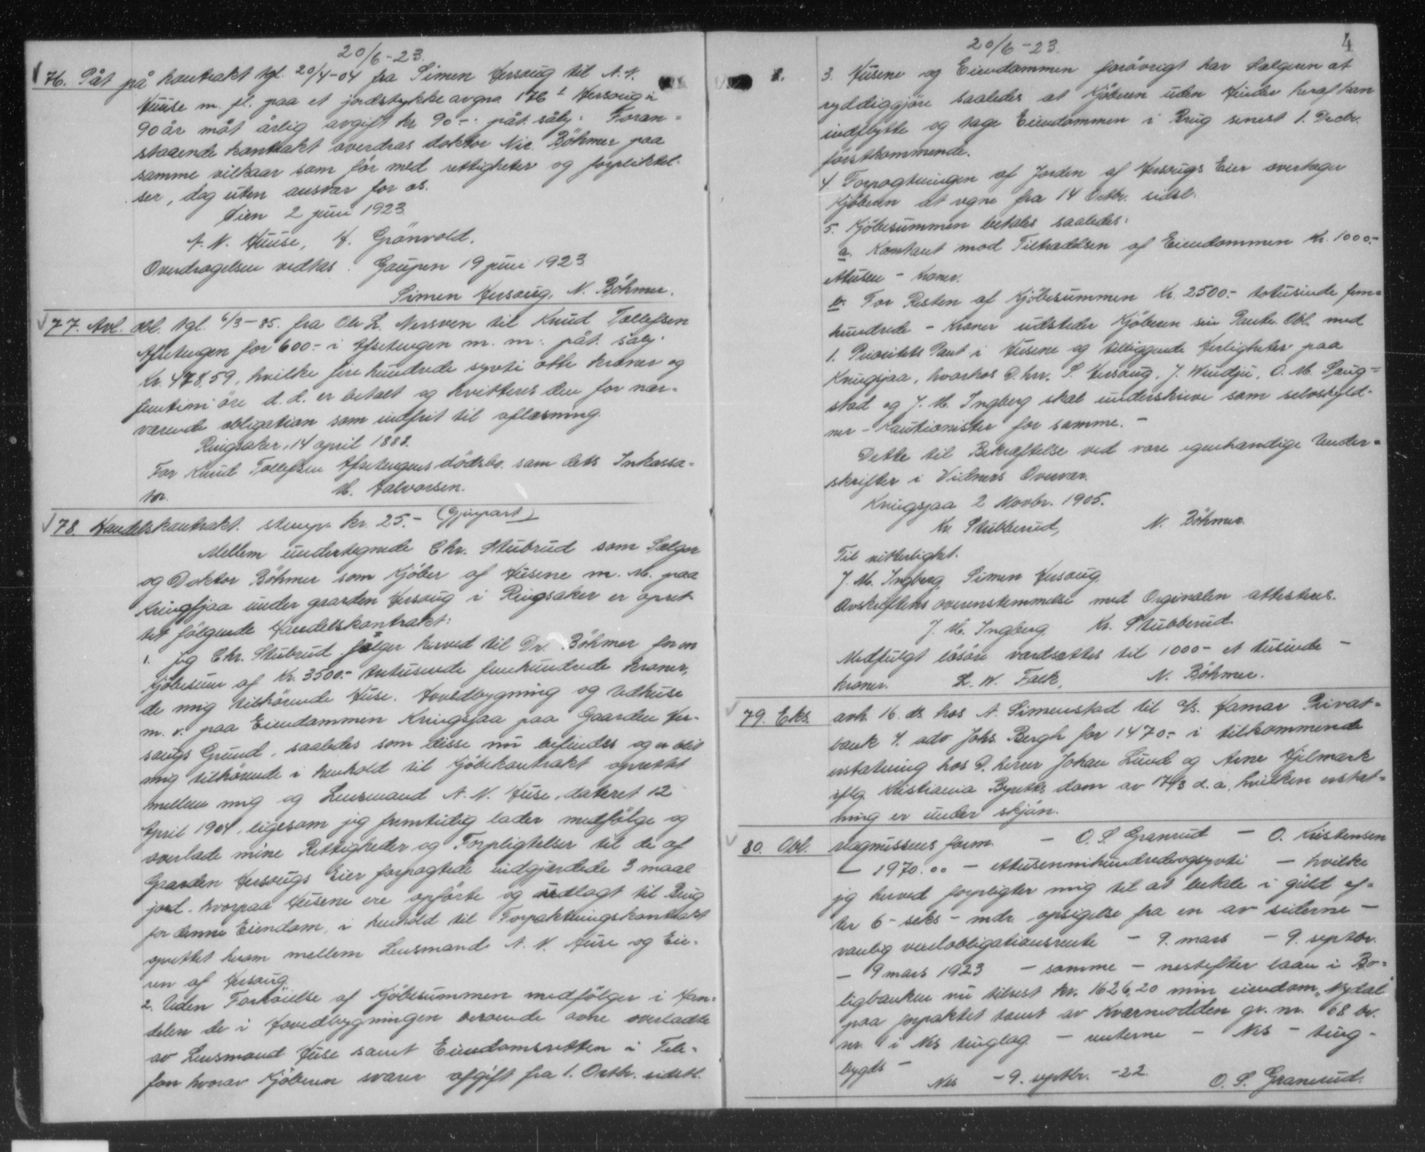 20/6-23.
76. Påt på kontrakt tgl. 20/4-04 fra Simen Hersoug til A. N.
Huuse m. fl. paa et jordstykke av gno 176 Hersoug i
90 år mot årlig avgift kr 90.-. påt. sålj: Foran-
staaende kontrakt overdras doktor Nic Bøhmer paa
samme vilkaar som før med rettigheter og forpliktel-
ser, dog uten ansvar for os.
Lien 2 juni 1923
A. N. Huuse, H. Grönvold.
Overdragelsen vedtas. Gaupen 19 juni 1923
Simen Hersoug, N. Böhmer.
77. Avl. obl. tgl. 6/3-85. fra Ole L. Nersveen til Knud Tollefsen
for 600.- i m. m. påt. sålj.
Kr. 478,59, hvilke fire hundrede sytti otte kroner og
femtini öre d. d. er betalt og kvitteres den for nær-
værende obligation som indfriet til aflæsning
Ringsaker, 14 april 1888.
For Knud Tollefsen dödsbo. som dets Inkassa-
tor. Halvorsen.
78. Handelskontrakt. stempr kr. 25.- (Gjenpart)
Mellem undertegnede Chr. Stubrud som Sælger
og Doktor Böhmer som Kjöber af Husene m. v. paa
Kringsjaa under gaarden Hersoug i Ringsaker er opret-
tet fölgende Handelskontrakt:
1. Jeg Chr. Stubrud sælger herved til Dr. Böhmer for en
Kjöbesum af Kr. 3500.- tretusinde femhundrede Kroner,
de mig tilhörende Huse. Hovedbygning og Udhuse
m. v. paa Eiendommen Kringsjaa paa Gaarden Her-
sougs Grund, saaledes som disse nu befindes og er blit
mig tilhörende i henhold til Kjöbekontrakt oprettet
mellem mig og Lensmand A. N. Huse, dateret 12
April 1904, ligesom jeg fremtidig lader medfölge og
overlade mine Rettigheder og Forpligtelser til de af
Gaarden Hersougs Eier forpagtede indgjerdede 3 maal
jord. hvorpaa Husene ere opförte og udlagt til Brug
for denne Eiendom, i henhold til Forpaktningskontrakt
oprettet herom mellem Lensmand A. N. Huse og Eie-
ren af Hersoug
2. Uden Forhöielse af Kjöbesummen medfölger i Han-
delen de i Hovedbygningen beroende ovne overladte
av Lensmand Huse samt Eiendomsretten i Tele-
fon hvorav Kjöberen svarer afgift fra 1. Octbr. sidstl.
20/6-23.
4
3. Husene og Eiendommen forövrigt har Sælgeren at
ryddiggjöre saaledes at Kjöberen uden Hinder heraf kan
indflytte og tage Eiendommen i Brug senest 1. Decbr.
förstkommende.
4 Forpagtningen af Jorden af Hersougs Eier overtager
Kjöberen at regne fra 14 Octbr. sidstl.
5. Kjöbesummen betales saaledes:
a. Kontant mod Tiltrædelsen af Eiendommen Kr. 1000.-
ettusen - Kroner.
b. For Resten af Kjöbesummen Kr. 2500.- totusinde fem-
hundrede - Kroner udsteder Kjöberen sin Pante Obl. med
1. Prioritets Pant i Husene og tilliggende Herligheder paa
Kringsjaa, hvorhos D. hrr. S. Hersoug, J. Windju, O. M. Spang-
stad og J. M. Ingberg skal underskrive som selvskyld-
ner - Kautionister for samme. -
Dette til Bekræftelse ved vore egenhændige Under-
skrifter i Vidners Overvær.
Kringsjaa 2 Novbr. 1905.
Kr. Stubberud, N. Böhmer.
Til vitterlighet.
J. M. Ingberg Simen Hersoug
Avskriftens overenstemmelse med Orginalen attesteres.
J. M. Ingberg Kr. Stubberud
Medfulgt lösöre værdsættes til 1000.- et tusinde -
kroner. L. W. Falk, N. Böhmer.
79. Eks. anh. 16. ds. hos A. Simenstad til A/s. Hamar Privat-
bank v. adv Johs. Bergh for 1470.- i tilkommende
erstatning hos D. herrer Johan Lund og Arne Hjelmark
iflg. Kristiania Byretts dom av 17/3 d. å, hvilken erstat-
ning er under skjøn.
80. Obl. Magnussens form. - O. S. Granrud - O. Kristensen
- 1970.00 - ettusennihundredeogsytti - hvilke
jeg herved forpligter mig til at betale i guld ef-
ter 6 - seks - mdr opsigelse fra en av siderne -
vanlig vekselobligationsrente - 9. mars - 9. septbr.
- 9 mars 1923 - samme - nestefter laan i Bo-
ligbanken nu tilrest kr. 1626,20 min eiendom, Nydal
paa forpaktet tomt av Kværnodden gr. nr. 68 br.
nr. i Nes tinglag - renterne - Nes - ting-
bygds -
Nes - 9. septbr. - 22.
O. S. Granrud.